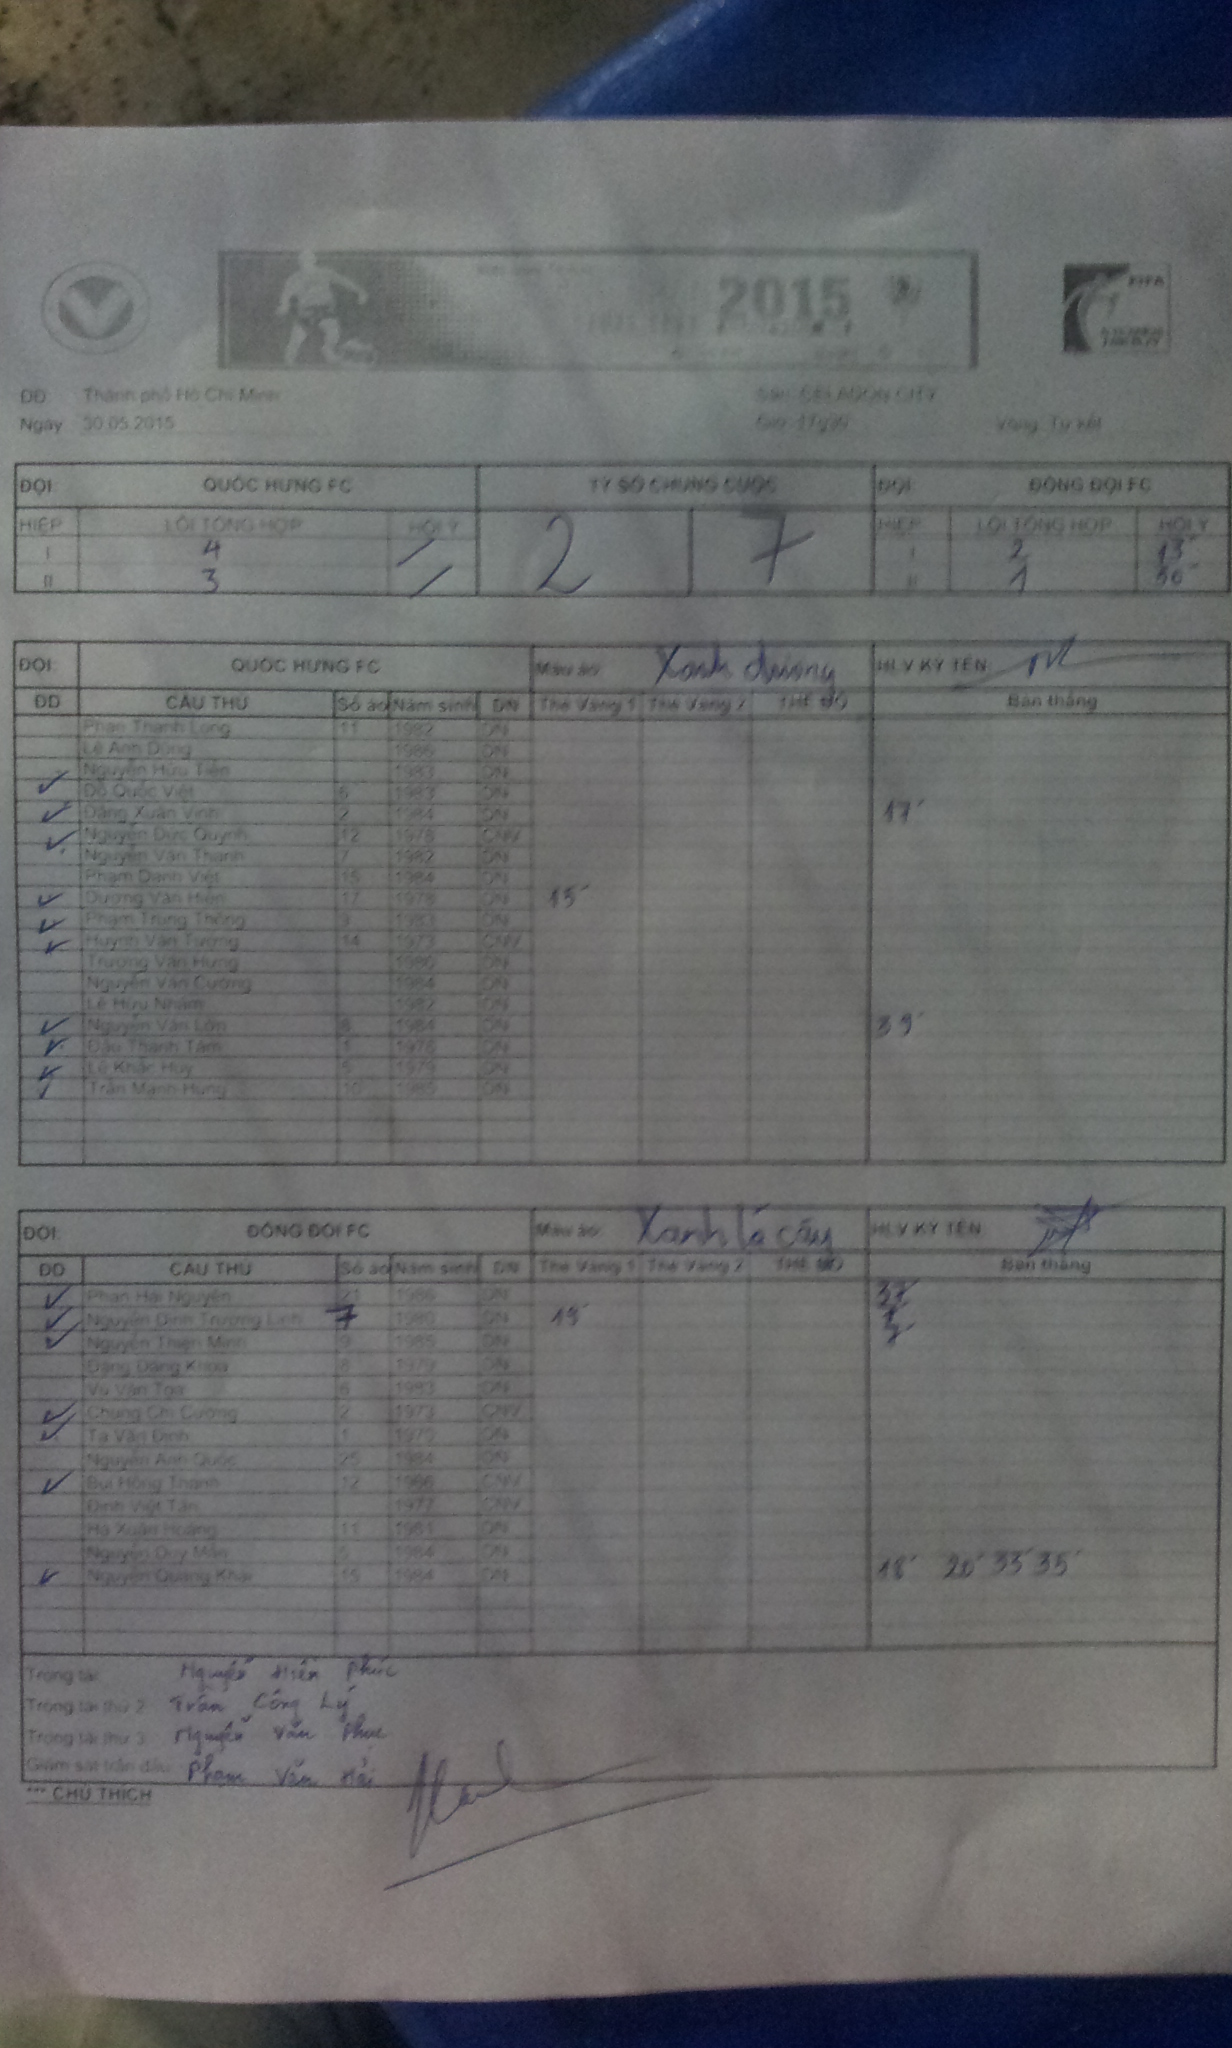 2015
FIFA
ĐĐ: Thành phố Hồ Chí Minh Sân: CELADON CITY
Ngày: 30.05.2015 Vòng: Tứ kết
ĐỘI: QUỐC HƯNG FC TỶ SỐ CHUNG CUỘC ĐỘI: ĐỒNG ĐỘI FC
HIỆP LỖI TỔNG HỢP HỘI Ý 2 7 HIỆP LỖI TỔNG HỢP HỘI Ý
I 4 / I 2 13'
II 3 / II 1
ĐỘI: QUỐC HƯNG FC Màu áo: Xanh dương HLV KÝ TÊN:
ĐD CẦU THỦ Số áo Năm sinh ĐN Thẻ Vàng 1 Thẻ Vàng 2 THẺ ĐỎ Bàn thắng
Phan Thanh Long 11 1982 DN
Lê Anh Dũng 1986 DN
Nguyễn Hữu Tiến 1983 DN
✓ Đỗ Quốc Việt 6 1983 DN
✓ Đặng Xuân Vinh 2 1984 DN 17'
✓ Nguyễn Đức Quỳnh 12 1978 CNV
Nguyễn Văn Thành 7 1982 DN
Phạm Danh Việt 15 1984 DN
✓ Dương Văn Hiền 17 1978 DN 15'
✓ Phạm Trung Thông 9 1983 DN
✓ Huỳnh Văn Tường 14 1973 CNV
Trương Văn Hưng 1986 DN
Nguyễn Văn Cường 1984 DN
Lê Hữu Nhâm 1982 DN
✓ Nguyễn Văn Lớn 8 1984 DN 39'
✓ Đậu Thanh Tâm 1 1978 DN
✓ Lê Khắc Huy 5 1979 DN
✓ Trần Mạnh Hùng 10 1985 DN
ĐỘI: ĐỒNG ĐỘI FC Màu áo: Xanh lá cây HLV KÝ TÊN:
ĐD CẦU THỦ Số áo Năm sinh ĐN Thẻ Vàng 1 Thẻ Vàng 2 THẺ ĐỎ Bàn thắng
✓ Phan Hải Nguyên 21 1986 DN 37'
✓ Nguyễn Đình Trường Linh 7 1980 DN 19'
✓ Nguyễn Thiện Minh 9 1985 DN
Đặng Đăng Khoa 8 1979 DN
Vũ Văn Tọa 6 1983 DN
✓ Chung Chí Cường 2 1973 CNV
✓ Tạ Văn Định 1 1979 DN
Nguyễn Anh Quốc 25 1984 DN
✓ Bùi Hồng Thanh 12 1986 CNV
Đinh Viết Tân 1977 CNV
Hà Xuân Hoàng 11 1981 DN
Nguyễn Duy Mẫn 5 1984 DN
✓ Nguyễn Quang Khải 15 1984 DN 18' 20' 33' 35'
Trọng tài: Nguyễn Hiền Phúc
Trọng tài thứ 2: Trần Công Lý
Trọng tài thứ 3: Nguyễn Văn Phục
Giám sát trận đấu: Phạm Văn Hải
*** CHÚ THÍCH